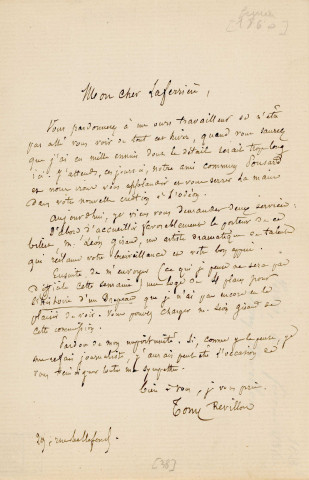 Mon cher Laferrière,
Vous pardonnerez à un ours travailleur de n'être
pas allé vous voir de tout cet hiver, quand vous saurez
que j'ai eu mille ennuis dont le détail serait trop long
ici. J'attends, ces jours-ci, notre ami commun Ponsard
et nous irons vous applaudir et vous serrer la main
dans votre nouvelle création à l'Odéon.
Aujourd'hui, je viens vous demander deux services :
D'abord d'accueillir favorablement le porteur de ce
billet, M. Léon Girard, un artiste dramatique de talent
qui réclame votre bienveillance et votre bon appui.
Ensuite de m'envoyer (ce qui je pense ne sera pas
difficile cette semaine) une loge de 4 places pour
l'Histoire d'un Drapeau que je n'ai pas encore eu le
plaisir de voir. Vous pouvez charger M. Léon Girard de
cette commission.
Pardon de mon importunité. Si, comme je le pense, je
me refais journaliste, j'aurai peut-être l'occasion de
vous témoigner toute ma sympathie.
Bien à vous, je vous prie.
Tony Révillon
29, rue